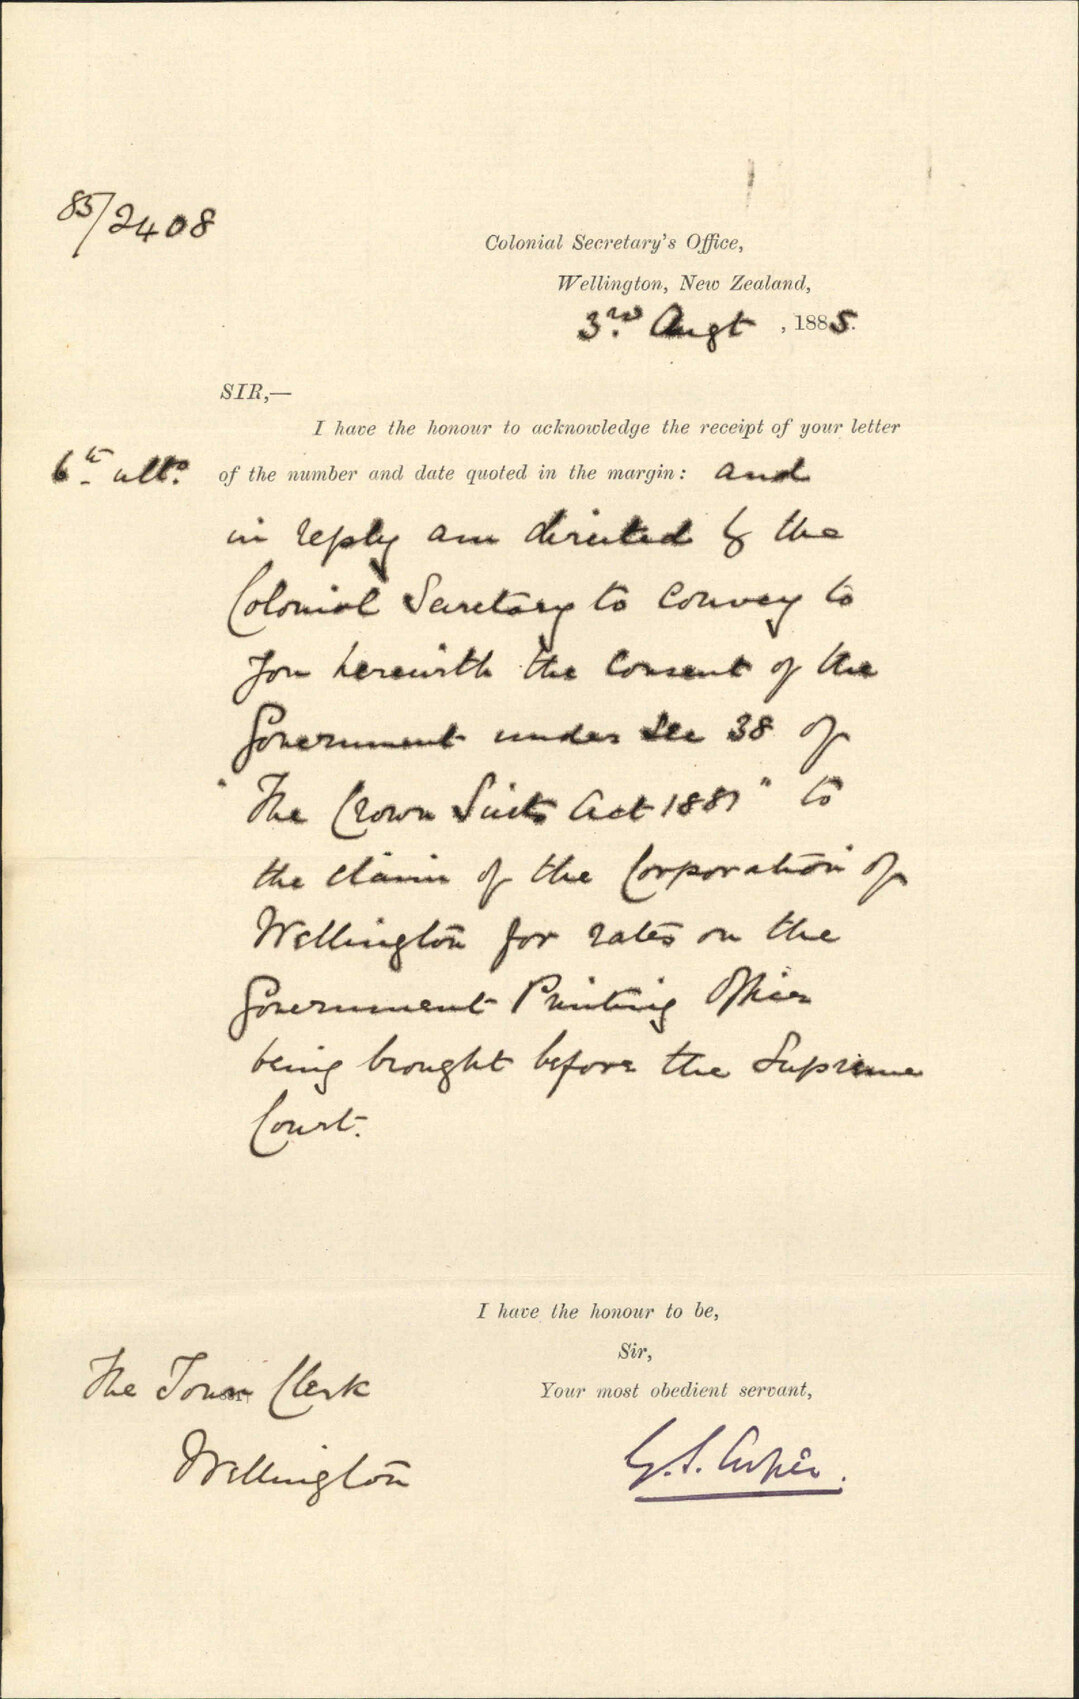 85/2408
Colonial Secretary's Office,
Wellington, New Zealand,
3rd Augt, 1885.
SIR,—
I have the honour to acknowledge the receipt of your letter
6th ulto. of the number and date quoted in the margin: and
in reply am directed by the
Colonial Secretary to convey to
you herewith the consent of the
Government under Sec 38 of
"The Crown Suits Act 1881" to
the claim of the Corporation of
Wellington for rates on the
Government Printing Office
being brought before the Supreme
Court.
I have the honour to be,
Sir,
Your most obedient servant,
G. S. Cooper.
The Town Clerk
Wellington